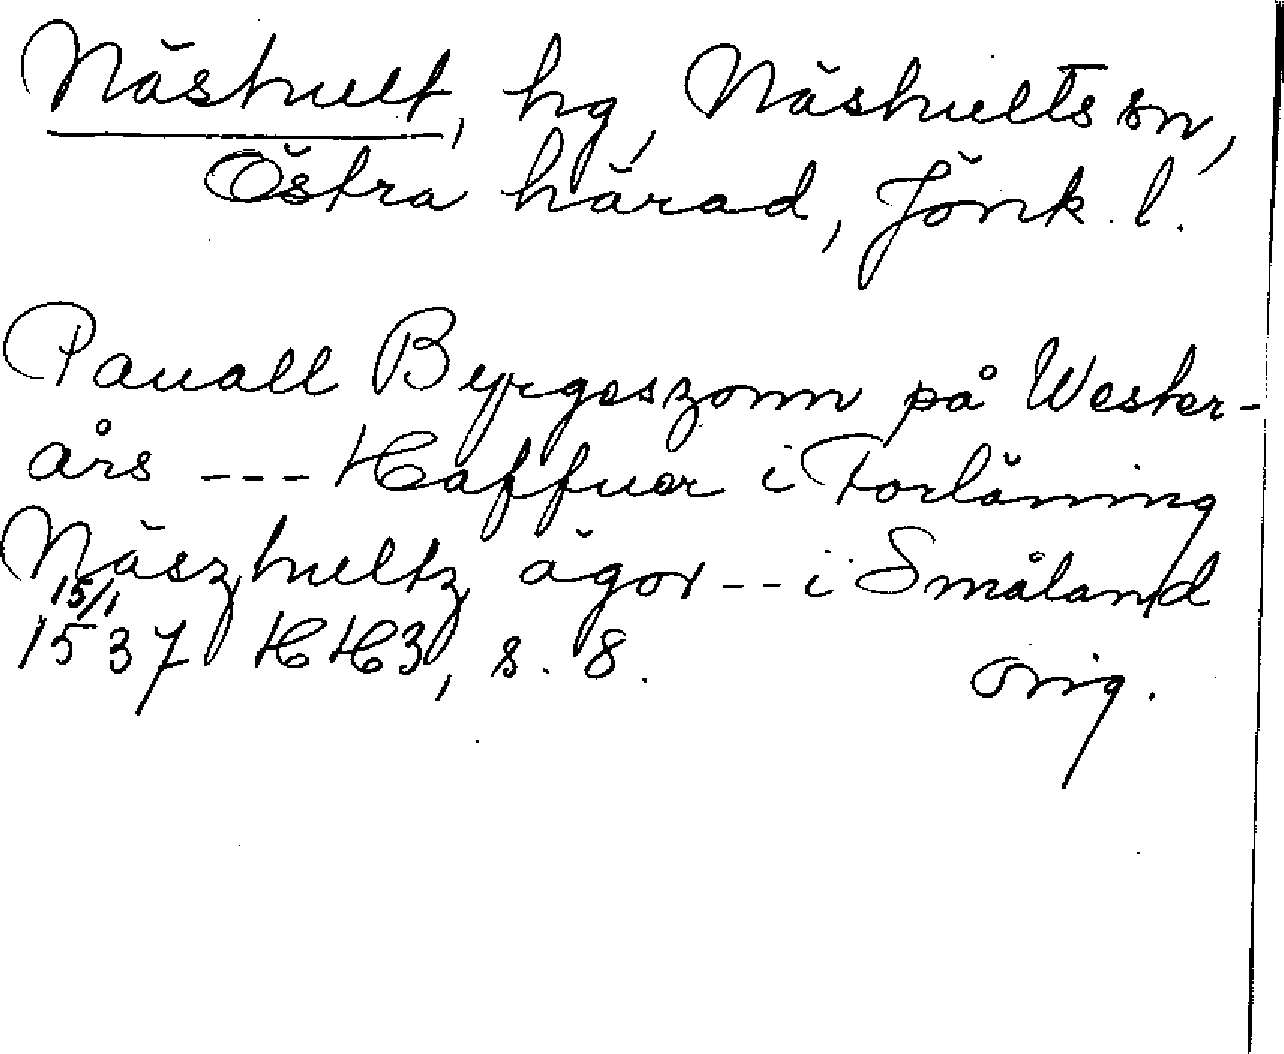 Näshult, hg, Näshults sn,
Östra härad, Jönk. l.
Pauall Byrgeszonn på Wester-
års --- Haffuer i Forläning
Näszhultz ägor -- i Småland
15/1
1537 HH3, s. 8. orig.